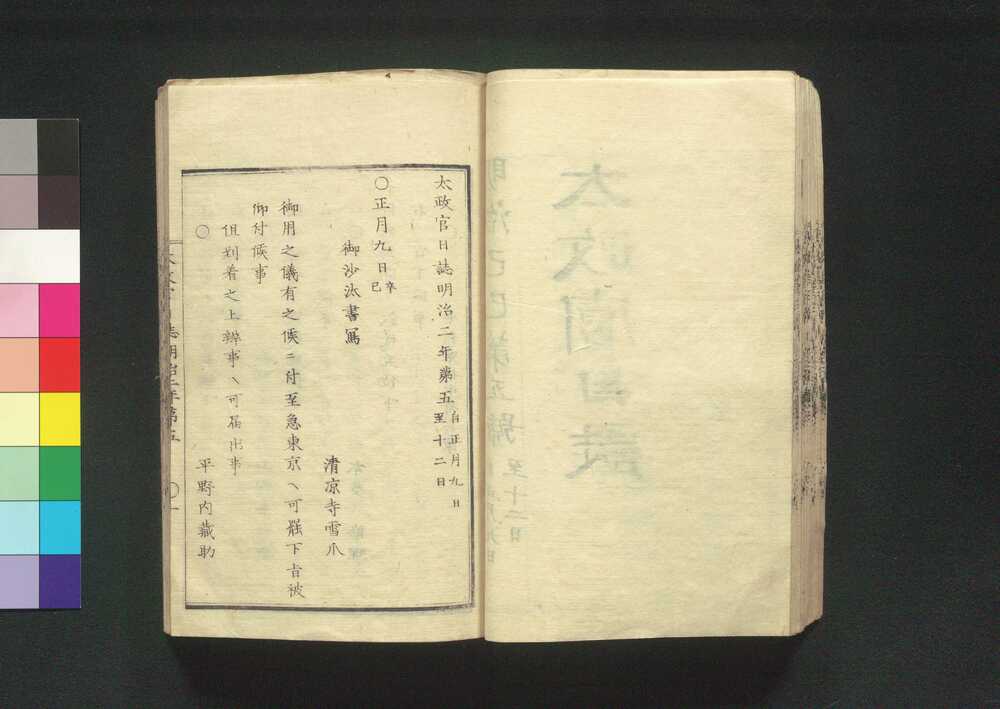 太政官日誌明治二年第五 自正月九日 至十二日
○正月九日 辛巳
御沙汰書寫
清凉寺雪爪
御用之儀有之候ニ付至急東京ヘ可罷下旨被
仰付候事
但到着之上辨事ヘ可届出事
○
平野内藏助